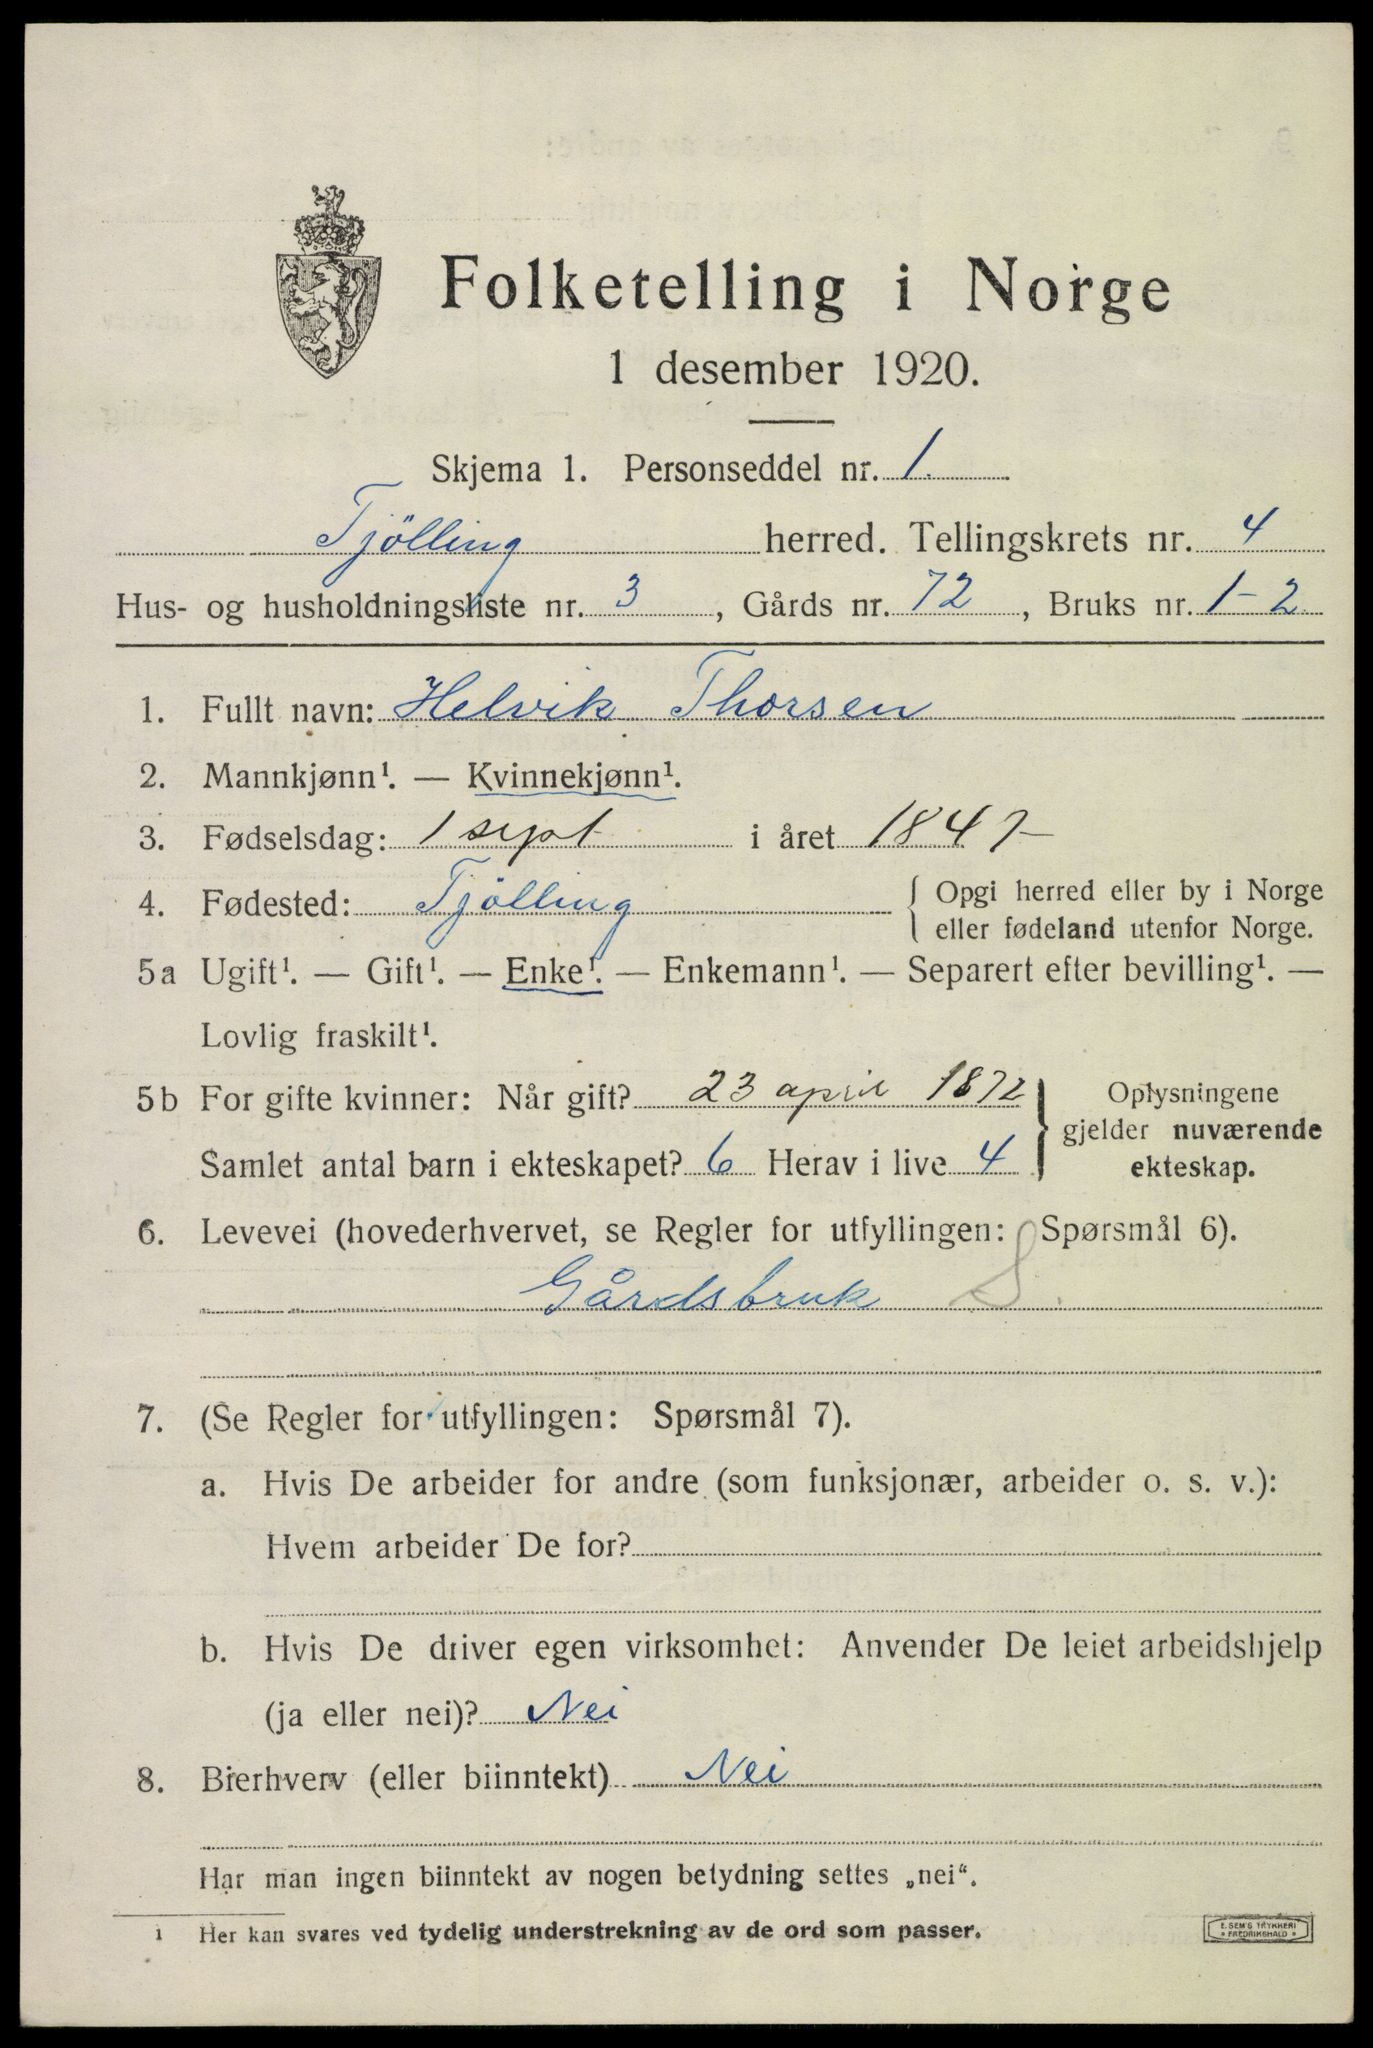 Folketelling i Norge
1 desember 1920.
Skjema 1. Personseddel nr. 1.
Tjölling herred. Tellingskrets nr. 4
Hus- og husholdningsliste nr. 3, Gårds nr. 72, Bruks nr. 1-2
1. Fullt navn: Helvik Thorsen
2. Mannkjønn¹. — Kvinnekjønn¹.
3. Fødselsdag: 1 sept i året 1847-
4. Fødested: Tjölling { Opgi herred eller by i Norge
eller fødeland utenfor Norge.
5a Ugift¹. — Gift¹. — Enke¹. — Enkemann¹. — Separert efter bevilling¹. —
Lovlig fraskilt¹.
5b For gifte kvinner: Når gift? 23 april 1872
Samlet antal barn i ekteskapet? 6 Herav i live 4
} Oplysningene
gjelder nuværende
ekteskap.
6. Levevei (hovederhvervet, se Regler for utfyllingen: Spørsmål 6).
Gårdsbruk S.
7. (Se Regler for utfyllingen: Spørsmål 7).
a. Hvis De arbeider for andre (som funksjonær, arbeider o. s. v.):
Hvem arbeider De for?
b. Hvis De driver egen virksomhet: Anvender De leiet arbeidshjelp
(ja eller nei)? Nei
8. Bierhverv (eller biinntekt) Nei
Har man ingen biinntekt av nogen betydning settes „nei“.
1 Her kan svares ved tydelig understrekning av de ord som passer.
E. SEM'S TRYKKERI
* FREDRIKSHALD *